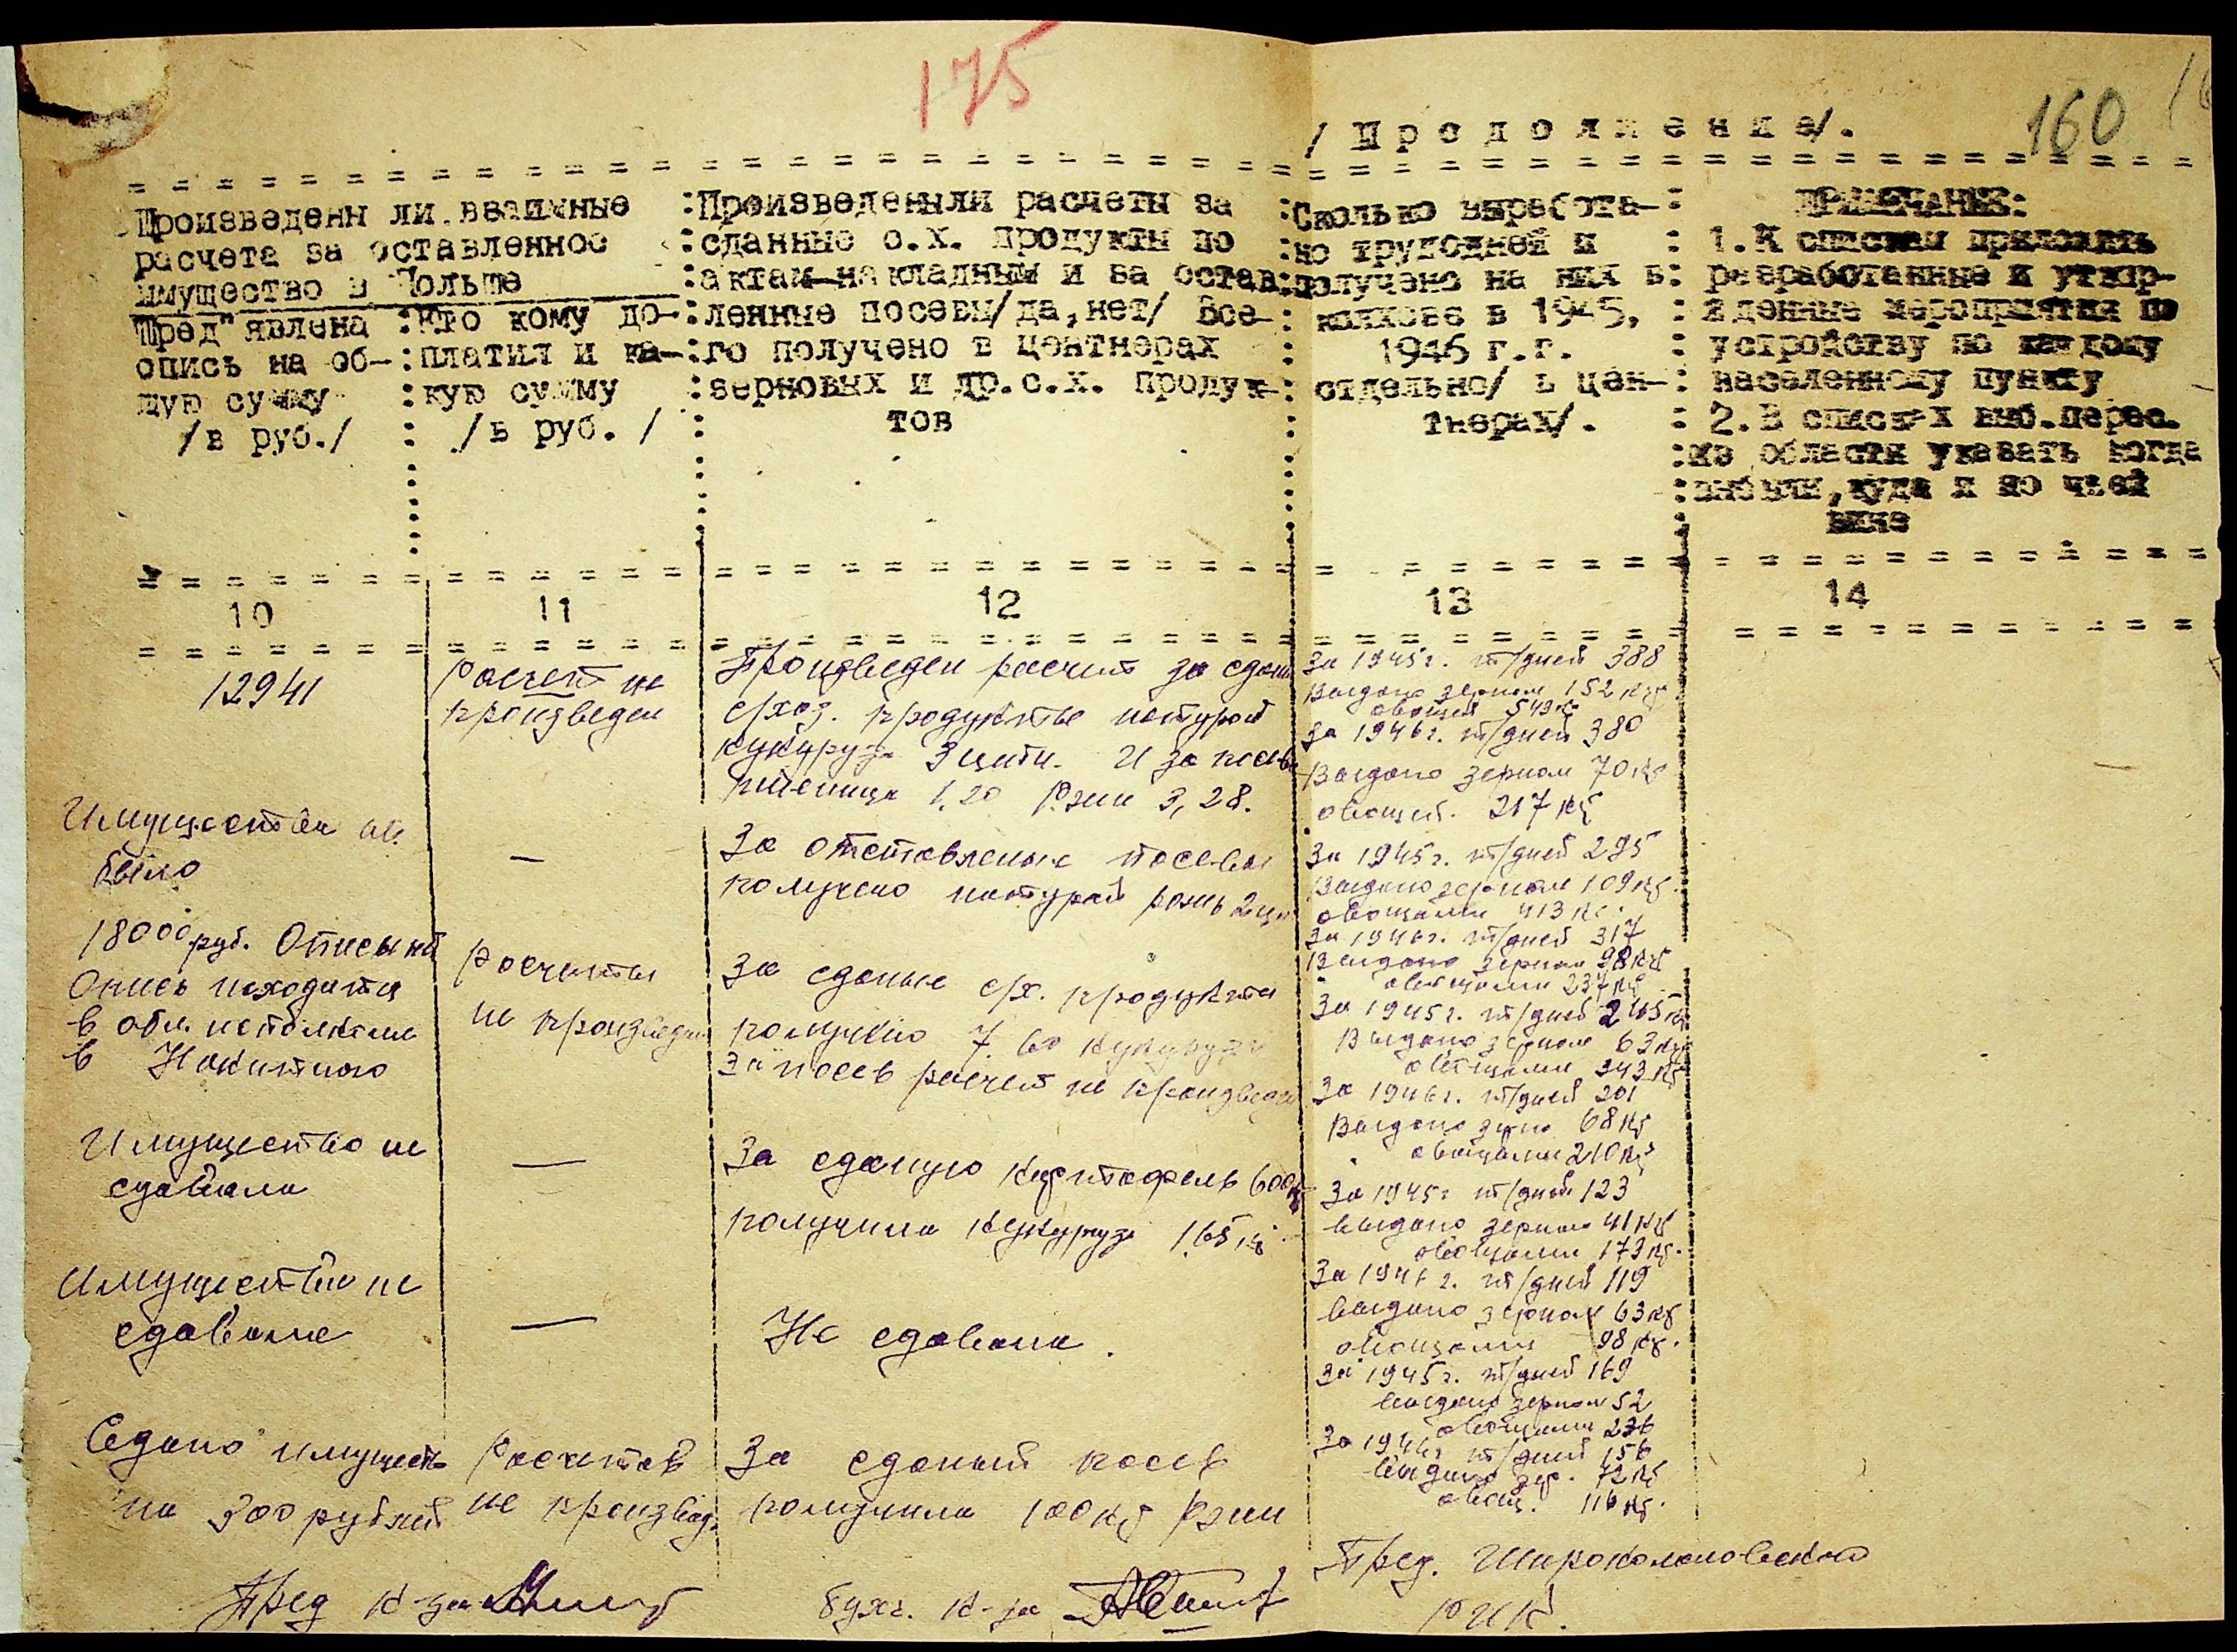 175
160
/ П р о д о л ж е н и е/.
Произведены ли взаимные
расчета за оставленное
имущество в Польше
Пред"явлена
опись на об-
щую сумму
/в руб./
кто кому до-
платил и ка-
кую сумму
/в руб. /
Произведены ли расчеты за
сданные с.х. продукты по
актам-накладным и за остав
ленные посевы/да,нет/ Все-
го получено в центнерах
зерновых и др.с.х. продук-
тов
Сколько выработа-
но трудодней и
получено на них в
колхозе в 1945,
1946 г.г.
отдельно/ в цен-
тнерах/.
ПРИМЕЧАНИЕ:
1.К спискам приложить
разработанные и утвер-
жденные мероприятия по
устройству по каждому
населенному пункту
2.В списках выб.перес.
из области указать когда
выбыли,куда и по чьей
вине
10 11 12 13 14
12941
Расчет не
произведен
Произведен расчет за сдан
с/хоз. продукты натурой
кукуруза 3 цнтн. И за посев
пшеница 1.20 Ржи 3,28.
За 1945г. т/дней 388
Выдано зерном 152 кг
овощей 549 кг
За 1946г. т/дней 380
Выдано зерном 70 кг
овощей. 217 кг
Имущества не
было
—
За отставленые посевы
получено натурой рожь 2 цн
За 1945г. т/дней 295
Выдано зерном 109 кг.
овощами 413 кг.
За 1946г. т/дней 317
Выдано зерном 98 кг
овощами 237 кг
18000 руб.
Опись находится
в обл. исполкоме
в
Расчеты
не произведен
За сданые с/х. продукты
получено 7.60 кукурузы
За посев расчет не произведен
За 1945г. т/дней 245
Выдано зерном 63 кг
овощами 343 кг
За 1946г. т/дней 201
Выдано зерно 68 кг
овощами 210 кг
Имущество не
сдавала
—
За сданую картофель 600
получила кукурузы 1.65 ц
За 1945г т/дней 123
выдано зерном 41 кг
овощами 173 кг.
За 1946г. т/дней 119
выдано зерном 63 кг
овощами 98 кг.
Имущество не
сдавала
—
Не сдавала.
За 1945г. т/дней 169
выдано зерном 52
овощами 236
За 1946г т/дней 156
выдано зер. 72 кг
овощ. 116 кг.
Сдано имуществ
на 300 рублей
Расчетов
не производ.
За сданый посев
получила 100 кг Ржи
Пред к-за
бухг. к-за
Пред. Широколановского
РИК.